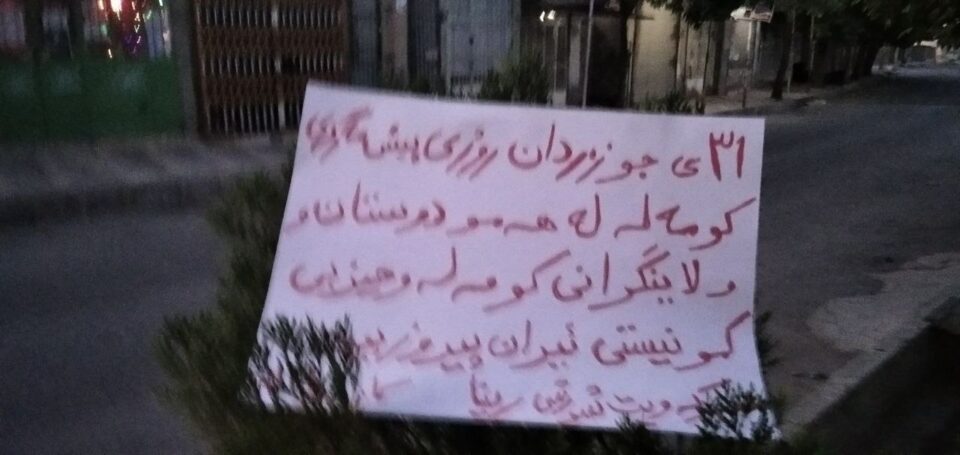 ٣١ی جوزردان روژی پیشمەرگەی
کومەلە لە هەمو دوستان و
و لاینگرانی کومەلە و حیزبی
کمونیستی ئیران پیروز بێ